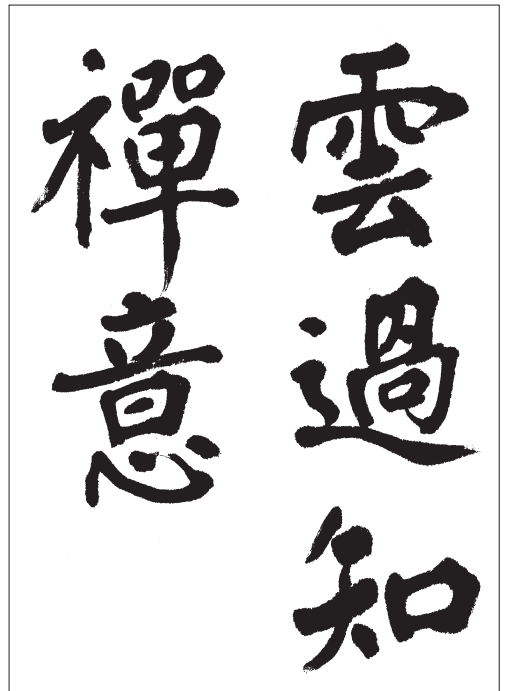 雲過知
禪意